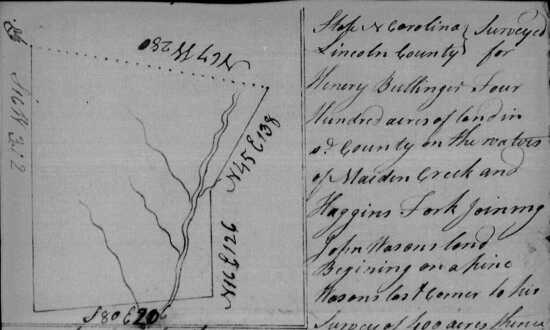 N 67 W 280
S 16 W 312
N 45 E 138
N 16 E 126
S 80 E 20
State N Carolina } Surveyed
Lincoln County } for
Henery Bullinger Four
Hundred acres of land in
sd. County on the waters
of Maiden Creek and
Haggins Fork Joining
John Wasons land
Begining on a pine
Wasons last Corner to his
Survey of 400 acres thence